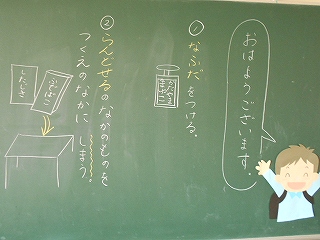 おはようございます。
① なふだをつける。
② らんどせるのなかのものを
つくえのなかに しまう。
ふでばこ
したじき